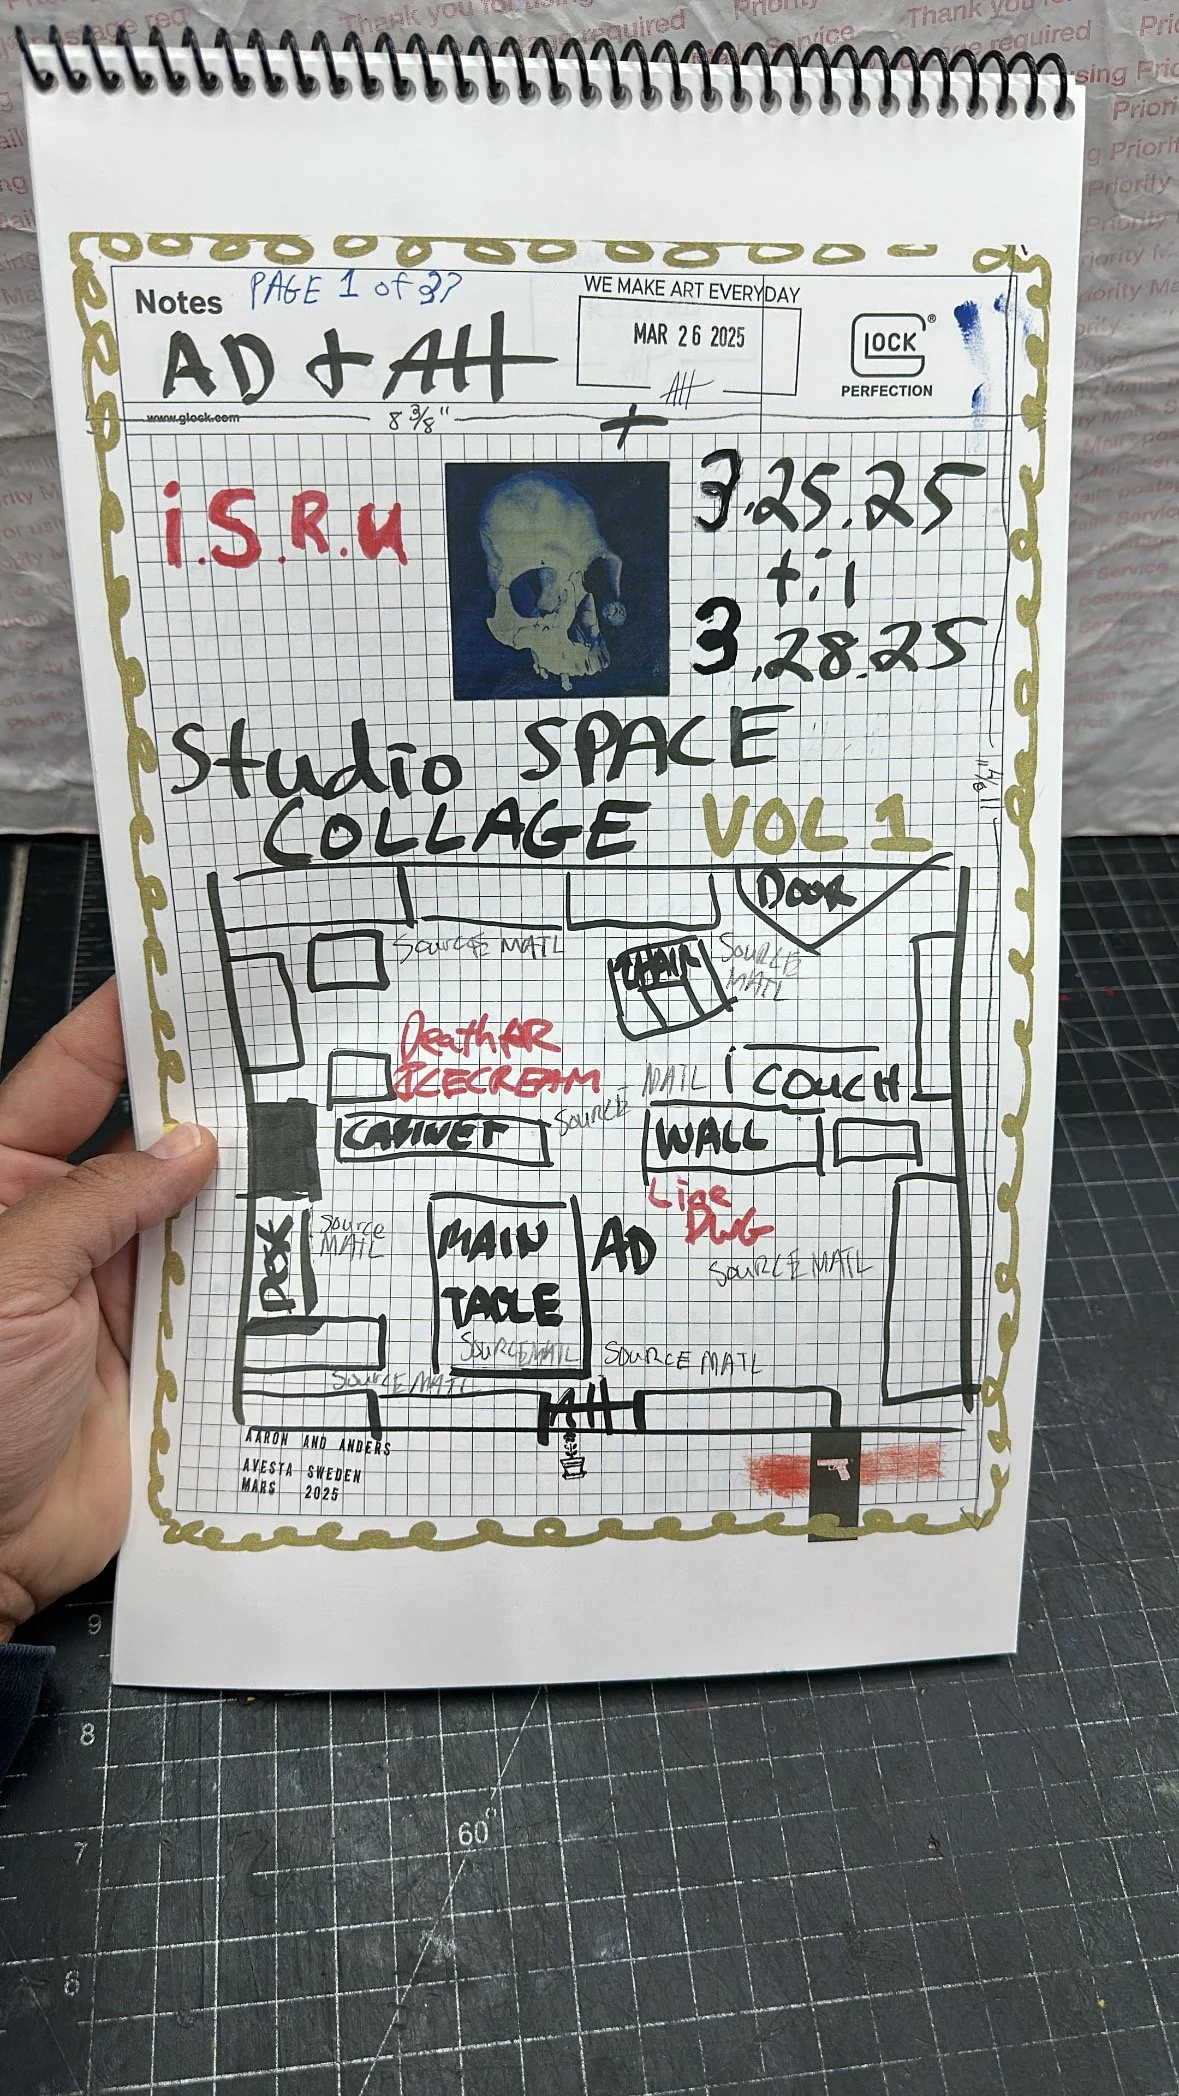 Thank you for using
Priority
Thank you for
Service
postage required
PAGE 1 of 37
Notes
WE MAKE ART EVERYDAY
AD + AH
MAR 26 2025
AH
GLOCK®
PERFECTION
www.glock.com
8 3/8"
+
i.S.R.u
3.25.25
til
3.28.25
Studio SPACE
COLLAGE VOL 1
DOOR
SOURCE MATL
CHAIR
SOURCE
MATL
Death AR
ICECREAM
SOURCE MATL
COUCH
CABINET
WALL
Line
DWG
Source
MATL
MAIN
TABLE
AD
SOURCE MATL
SOURCE MATL
SOURCE MATL
SOURCE MATL
AH
AARON AND ANDERS
AVESTA SWEDEN
MARS 2025
9
8
7
6
60°